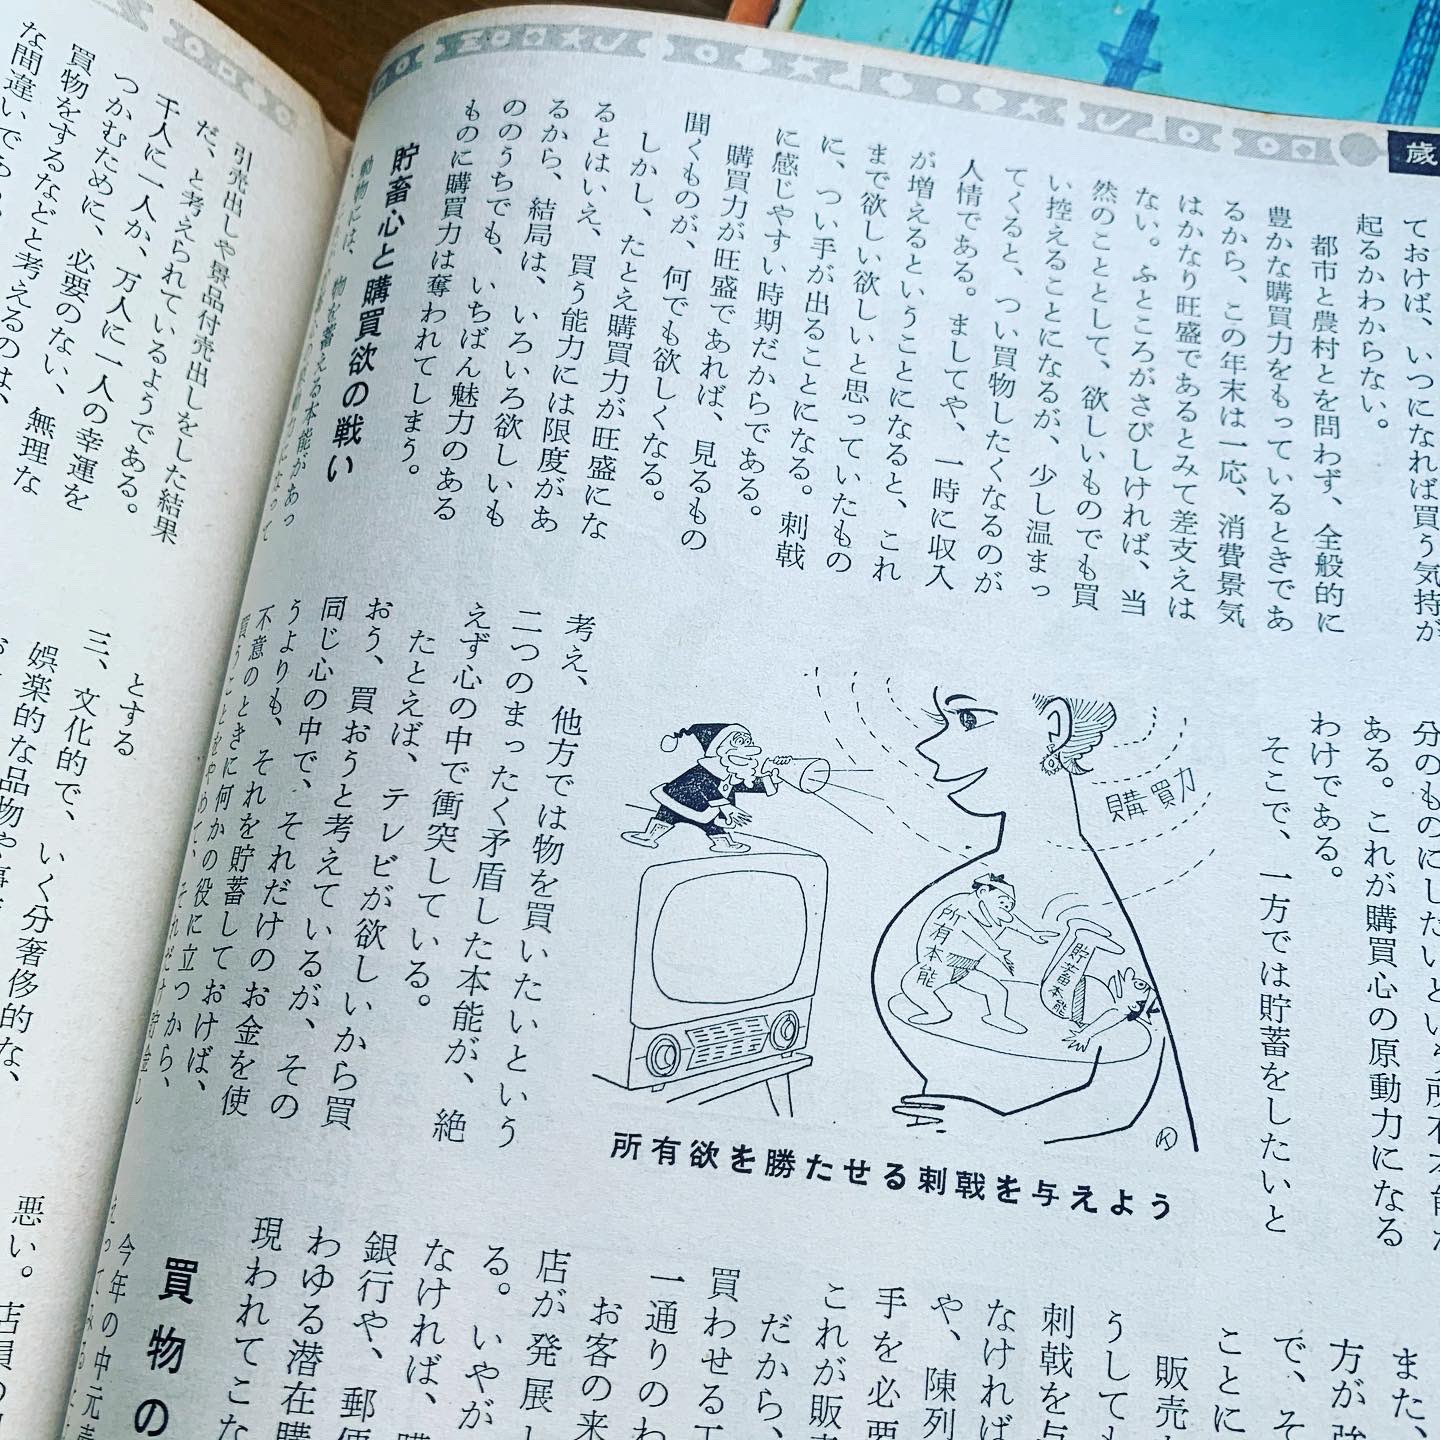 歳
ておけば、いつになれば買う気持が
起るかわからない。
都市と農村とを問わず、全般的に
豊かな購買力をもっているときであ
るから、この年末は一応、消費景気
はかなり旺盛であるとみて差支えは
ない。ふところがさびしければ、当
然のこととして、欲しいものでも買
い控えることになるが、少し温まっ
てくると、つい買物したくなるのが
人情である。ましてや、一時に収入
が増えるということになると、これ
まで欲しい欲しいと思っていたもの
に、つい手が出ることになる。刺戟
に感じやすい時期だからである。
購買力が旺盛であれば、見るもの
聞くものが、何でも欲しくなる。
しかし、たとえ購買力が旺盛にな
るとはいえ、買う能力には限度があ
るから、結局は、いろいろ欲しいも
ののうちでも、いちばん魅力のある
ものに購買力は奪われてしまう。
貯畜心と購買欲の戦い
動物には、物を蓄える本能があっ
分のものにしたいという所有本能が
ある。これが購買心の原動力になる
わけである。
そこで、一方では貯蓄をしたいと
購買力
所有本能
貯蓄本能
K
所有欲を勝たせる刺戟を与えよう
考え、他方では物を買いたいという
二つのまったく矛盾した本能が、絶
えず心の中で衝突している。
たとえば、テレビが欲しいから買
おう、買おうと考えているが、その
同じ心の中で、それだけのお金を使
うよりも、それを貯蓄しておけば、
不意のときに何かの役に立つから、
買うことをやめて、それだけ貯金し
また、
方が強
で、そ
ことに
販売
うしても
刺戟を与
なければ
や、陳列
手を必要
これが販売
だから、
買わせる工
一通りのわ
お客の来
店が発展し
る。いやが
なければ、購
銀行や、郵便
わゆる潜在購
現われてこな
買物の
今年の中元売
引売出しや景品付売出しをした結果
だ、と考えられているようである。
千人に一人か、万人に一人の幸運を
つかむために、必要のない、無理な
買物をするなどと考えるのは、
な間違いであ
とする
三、文化的で、いく分奢侈的な、
娯楽的な品物や
悪い。店員の